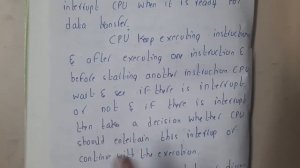 interrupt CPU when it is ready for
data transfer.
CPU keep executing instruction
& after executing one instruction &
before starting another instruction CPU
wait & see if there is interrupt
or not & if there is interrupt
then take a decision whether CPU
should entertain this interrup or
continue with the exection.